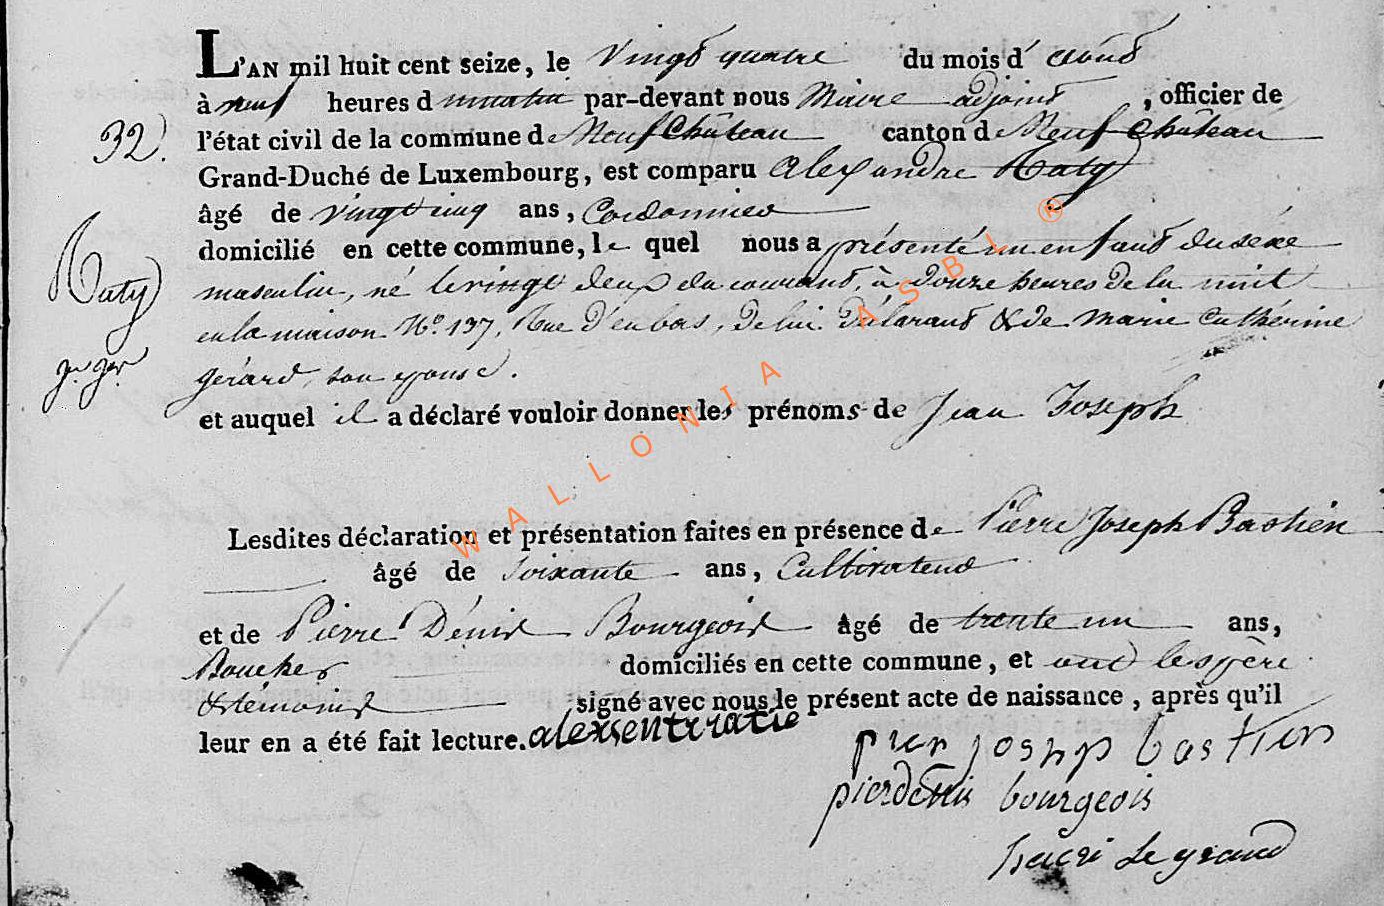 L'AN mil huit cent seize, le vingt quatre du mois d'août
à neuf heures d matin par-devant nous Maire adjoint, officier de
32). l'état civil de la commune de Neufchâteau canton de Neufchâteau
Grand-Duché de Luxembourg, est comparu alexandre Raty
âgé de vingt cinq ans, Cordonnier
domicilié en cette commune, le quel nous a présenté un enfant du sexe
Raty
masculin, né le vingt deux du courant, à douze heures de la nuit
en la maison No. 137, Rue d'enbas, de lui déclarant & de Marie Cathérine
gérard, son epouse.
et auquel il a déclaré vouloir donner les prénoms de Jean Joseph
Lesdites déclaration et présentation faites en présence de Pierre Joseph Bastien
âgé de soixante ans, Cultivateur
et de Pierre Dénis Bourgeois âgé de trente un ans,
Boucher domiciliés en cette commune, et ont les père
& temoins signé avec nous le présent acte de naissance, après qu'il
leur en a été fait lecture.
pier josehp bastien
pierdenis bourgeois
henri Le grand
WALLONIA ASBL ®